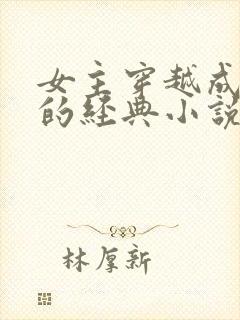 女主穿越成
的经典小说
林厚新